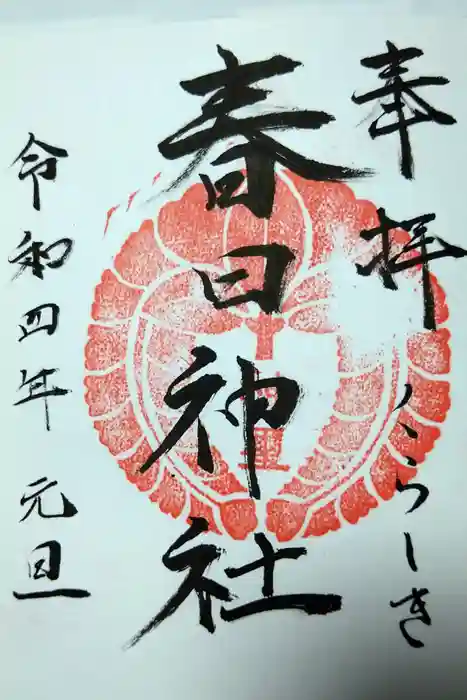 奉拝 くらしき
春日神社
令和四年 元旦